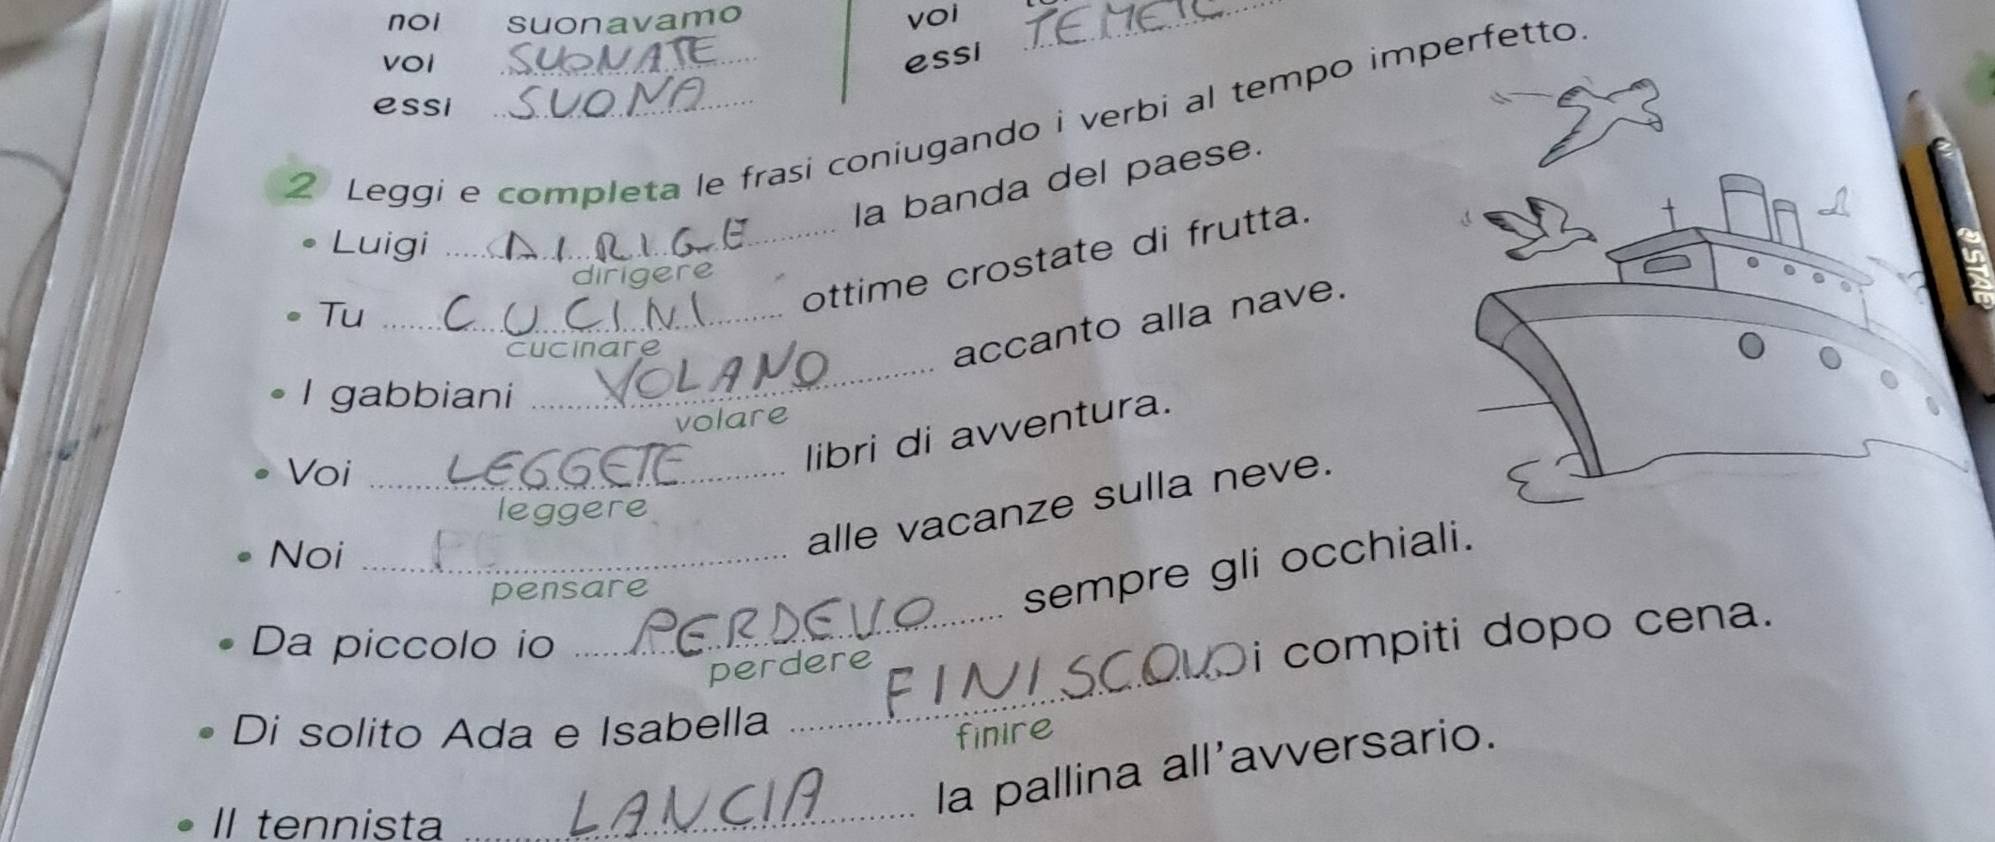 noi suonavamo voi
voi SUONATE essi
essi SUONA
2 Leggi e completa le frasi coniugando i verbi al tempo imperfetto.
• Luigi DIRIGE la banda del paese.
dirigere
• Tu CUCINI ottime crostate di frutta.
cucinare
• I gabbiani VOLANO accanto alla nave.
volare
• Voi LEGGETE libri di avventura.
leggere
• Noi alle vacanze sulla neve.
pensare
• Da piccolo io PERDEVO sempre gli occhiali.
perdere
• Di solito Ada e Isabella FINISCOVO i compiti dopo cena.
finire
• Il tennista LANCIA la pallina all'avversario.